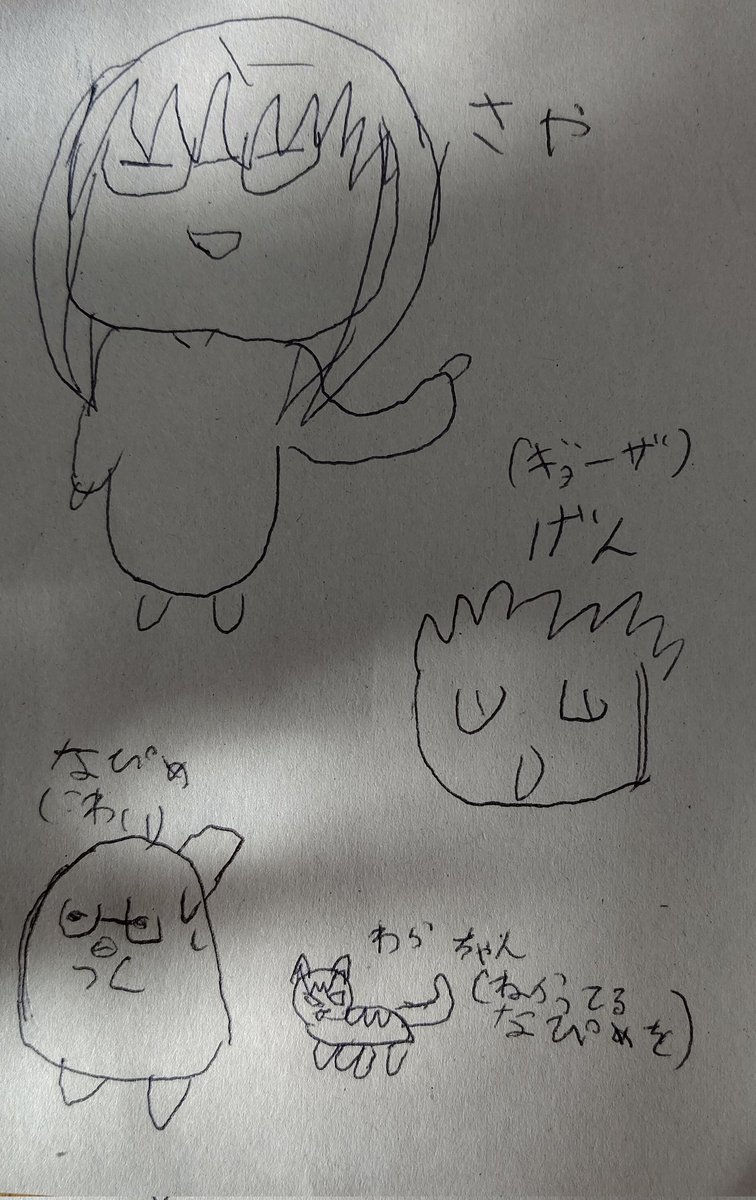 さや
(ギョーザ)
げん
なぴぬ
(こわい)
わらちゃん
(ねらってる
なぴぬを)